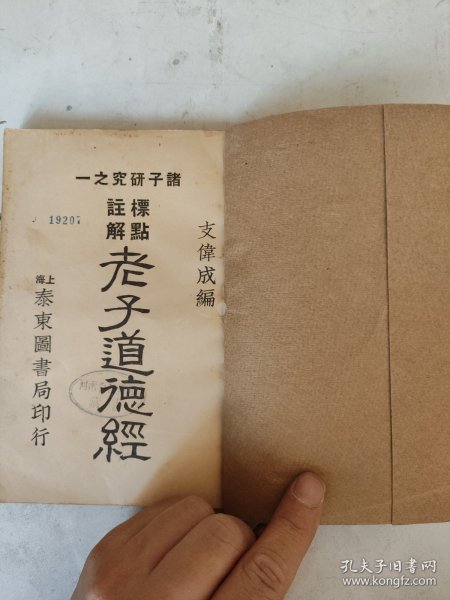 諸子研究之一
標點
註解
老子道德經
支偉成編
上海
泰東圖書局印行
19207
孔夫子旧书网
www.kongfz.com